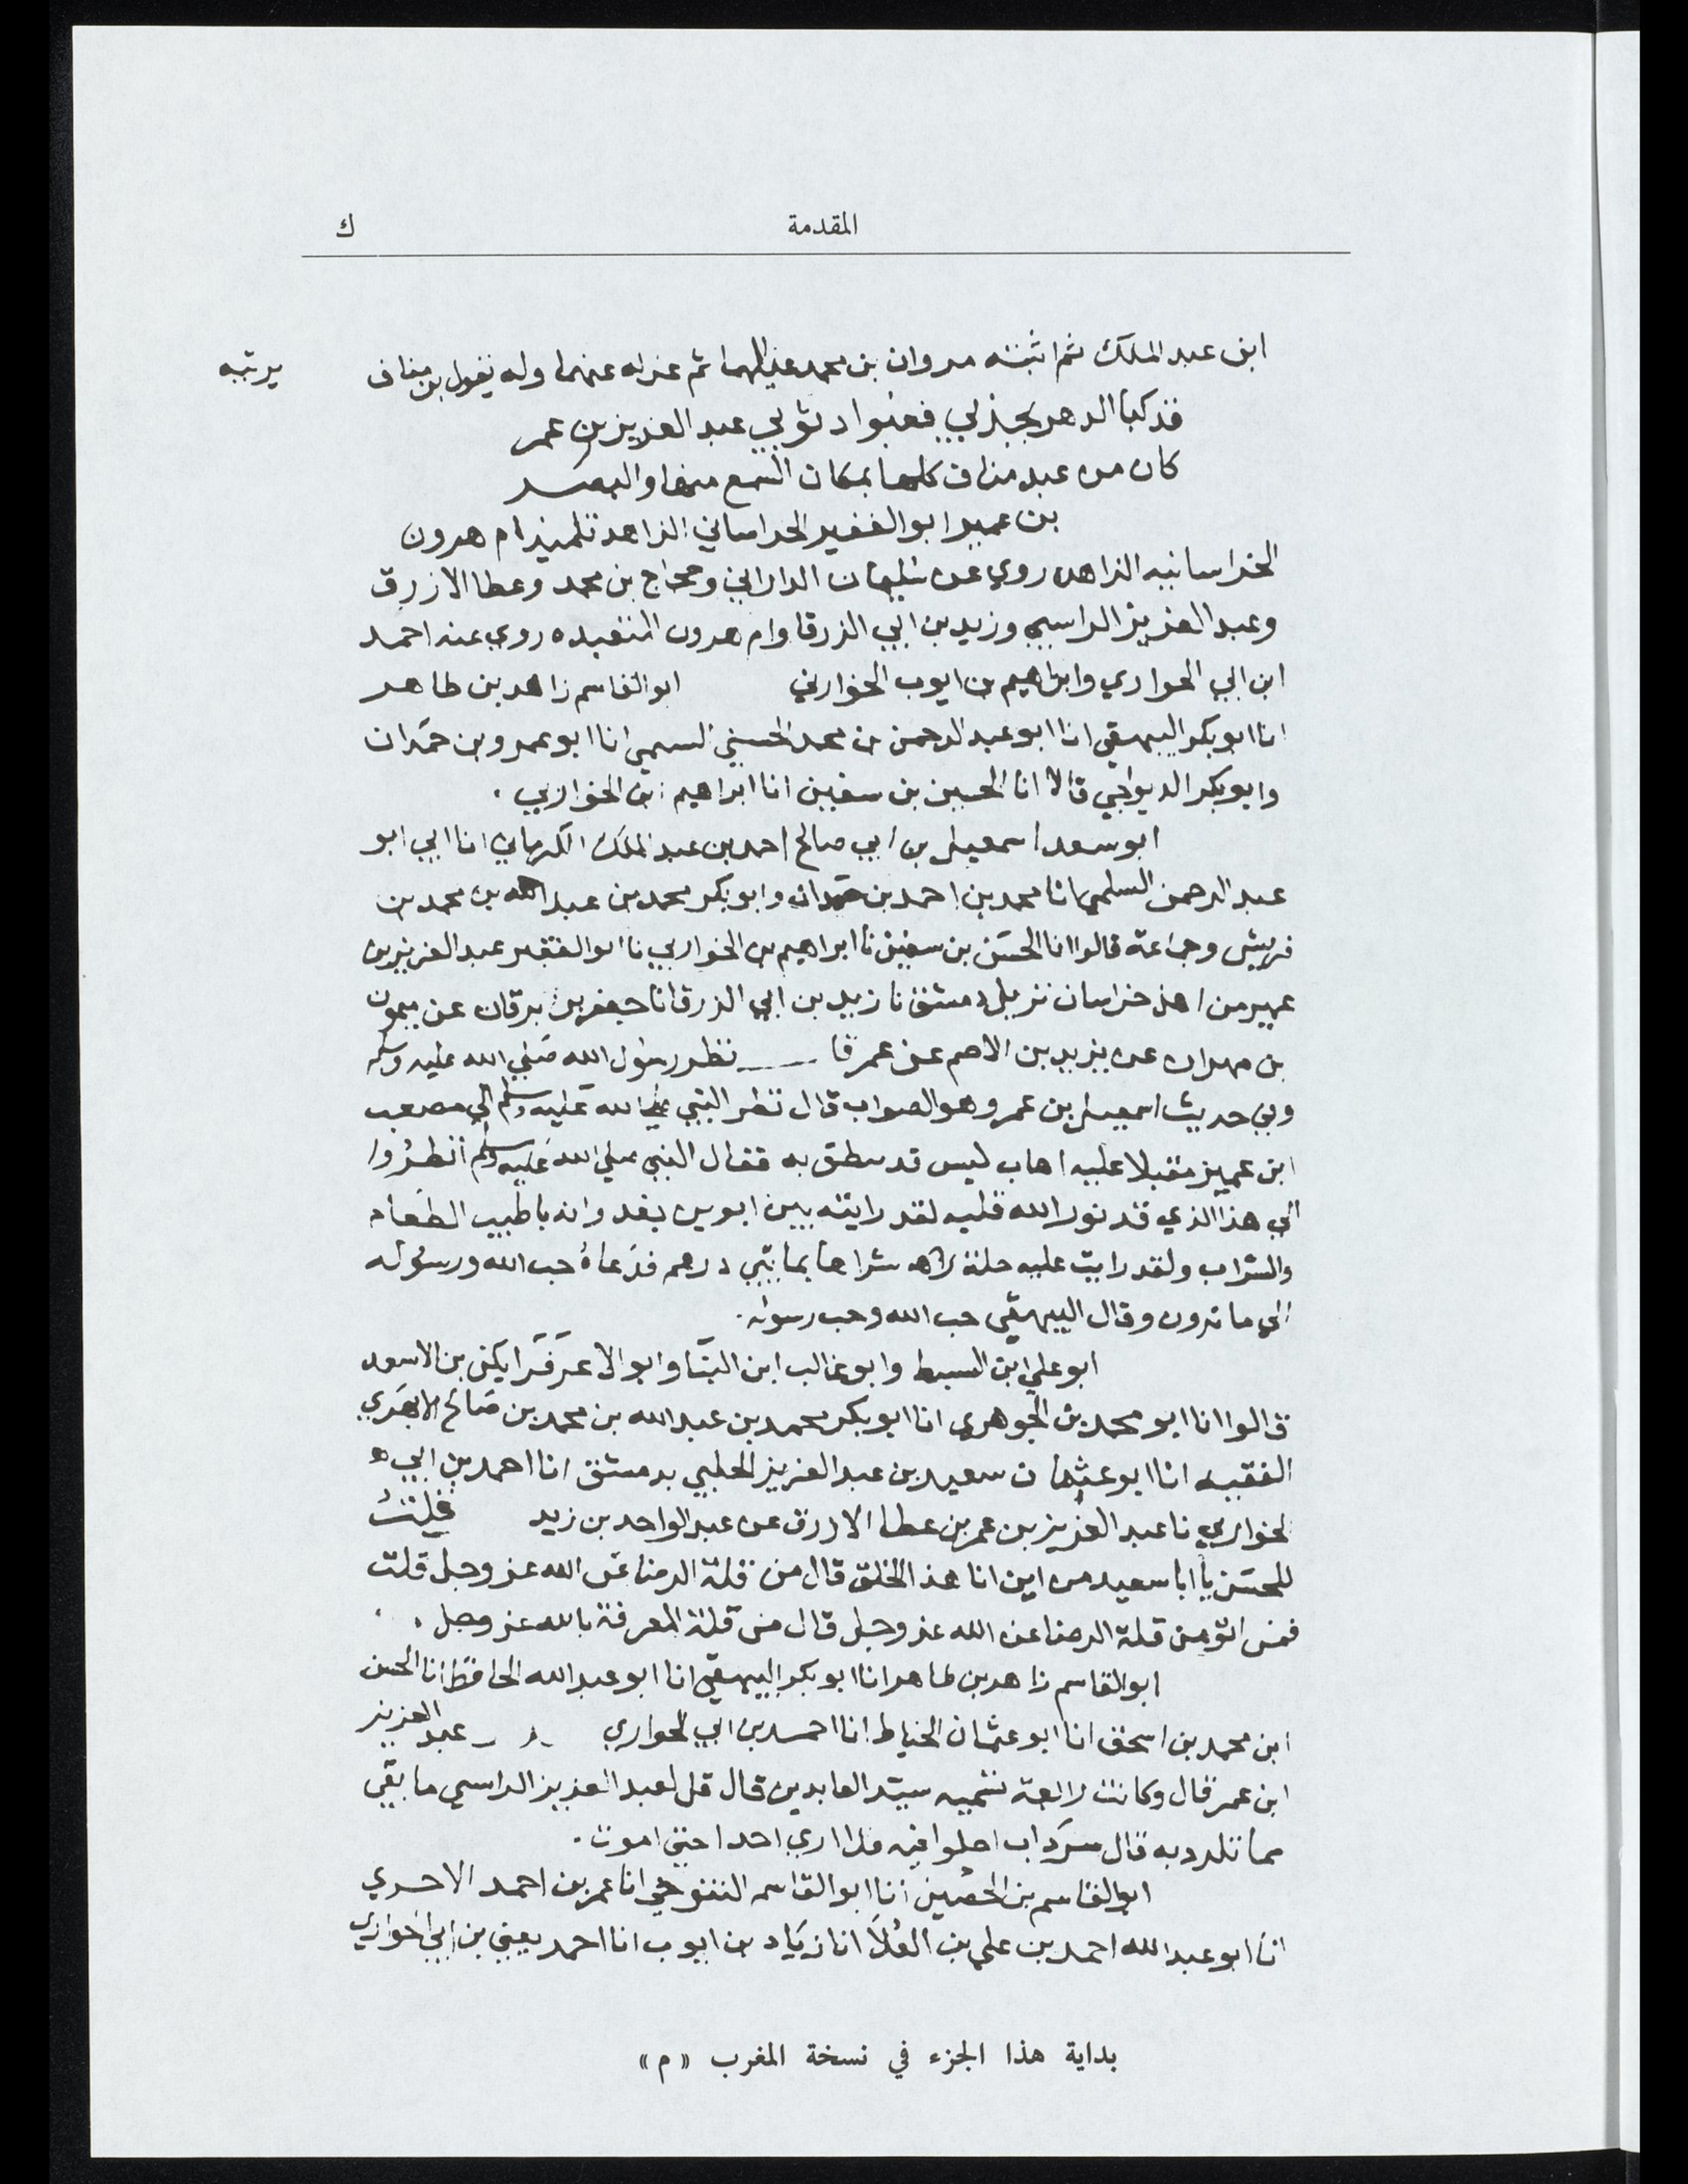 المقدمة
ك
ابن عبد الملك ثم اثبته مروان بن محمد عليهما ثم عزله عنهما وله يقول بن مناف يرثيه
قد كبا الدهر بي فعنوا د ثوبي عبد العزيز بن عمر
كان من عبد مناف كلها بمكان السمع منها والبصر
بن عمير ابو الفقير الخراساني الزاهد تلميذ ام هرون
الخراسانيه الزاهده روي عن سليمان الداراني وحجاج بن محمد وعطا الازرق
وعبد العزيز الراسبي وزيد بن ابي الزرقا وام هرون المتعبده روي عنه احمد
ابن ابي الحواري وابراهيم بن ايوب الحوراني ابو القاسم زاهد بن طاهر
انا ابو بكر البيهقي انا ابو عبد الرحمن بن محمد الحسني السلمي انا ابو عمرو بن حمدان
وابو بكر الديوانجي قالا انا الحسين بن سفين انا ابراهيم بن الحوراني .
ابو سعد اسمعيل بن ابي صالح احمد بن عبد الملك الكرماني انا ابي ابو
عبد الرحمن السلمي انا محمد بن احمد بن حمدان وابو بكر محمد بن عبد الله بن محمد بن
قريش وجماعة قالوا انا الحسن بن سفين نا ابراهيم بن الحوراني نا ابو الفقير عبد العزيز بن
عمير من اهل خراسان نزيل دمشق نا زيد بن ابي الزرقا نا جعفر بن برقان عن ميمون
بن مهران عن يزيد بن الاصم عن عمر قا نظر رسول الله صلي الله عليه وسلم
وفي حديث اسمعيل بن عمر وهو الصواب قال نظر النبي صلي الله عليه وسلم الي مصعب
ابن عمير مقبلا عليه اهاب كبس قد تنطق به فقال النبي صلي الله عليه وسلم انظروا
الي هذا الذي قد نور الله قلبه لقد رايته بين ابوين يغدوانه باطيب الطعام
والشراب ولقد رايت عليه حلة شراها بمايتي درهم فدعاه حب الله ورسوله
الي ما ترون وقال البيهقي حب الله وحب رسوله .
ابو علي ابن السبط وابو غالب ابن البنا وابو الاعز قراتكين بن الاسعد
قالوا انا ابو محمد بن الجوهري انا ابو بكر محمد بن عبد الله بن محمد بن صالح الابهري
الفقيه انا ابو عثمان سعيد بن عبد العزيز الحلبي بدمشق انا احمد بن ابي
الحواري نا عبد العزيز بن عمر بن عطا الازرق عن عبد الواحد بن زيد قلت
للحسن يا ابا سعيد من اين اتا هذا الخلق قال من قلة الرضا عن الله عز وجل قلت
فمن اتو من قلة الرضا عن الله عز وجل قال من قلة المعرفة بالله عز وجل .
ابو القاسم زاهد بن طاهر انا ابو بكر البيهقي انا ابو عبد الله الحافظ انا الحسن
ابن محمد بن اسحق انا ابو عثمان الخياط انا احمد بن ابي الحواري عبد العزيز
ابن عمر قال وكانت رابعة تسميه سيد العابدين قال قيل لعبد العزيز الراسبي ما بقي
مما تلذذ به قال سرداب اخلوا فيه فلا اري احدا حتي اموت .
ابو القاسم بن الحصين انا ابو القاسم التنوخي انا عمر بن احمد الاجري
انا ابو عبد الله احمد بن علي بن العلا انا زياد بن ايوب انا احمد يعني بن ابي الحواري
بداية هذا الجزء في نسخة المغرب « م »